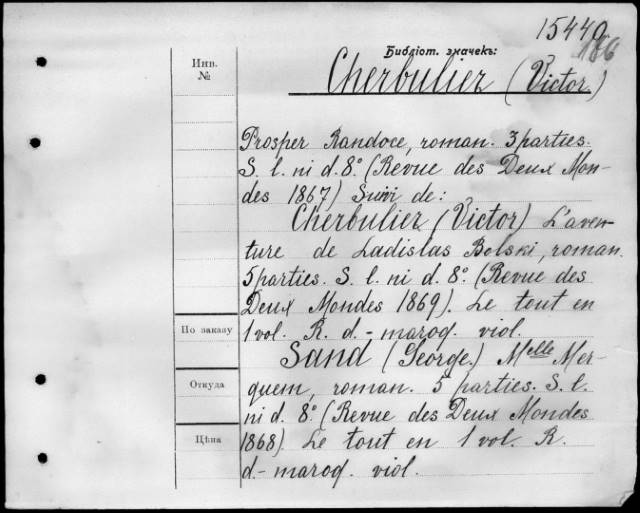 15440
166
Библіот. значекъ:
Инв.
№
Cherbuliez (Victor)
Prosper Randoce, roman. 3 parties.
S. l. ni d. 8º. (Revue des Deux Mon-
des 1867) Suivi de:
Cherbuliez (Victor) L'aven-
ture de Ladislas Bolski, roman.
5 parties. S. l. ni d. 8º. (Revue des
Deux Mondes 1869). Le tout en
По заказу
1 vol. R. d.-maroq. viol.
Sand (George.) Melle Mer-
Откуда
quem, roman. 5 parties. S. l.
ni d. 8º. (Revue des Deux Mondes
Цѣна
1868). Le tout en 1 vol. R.
d.-maroq. viol.